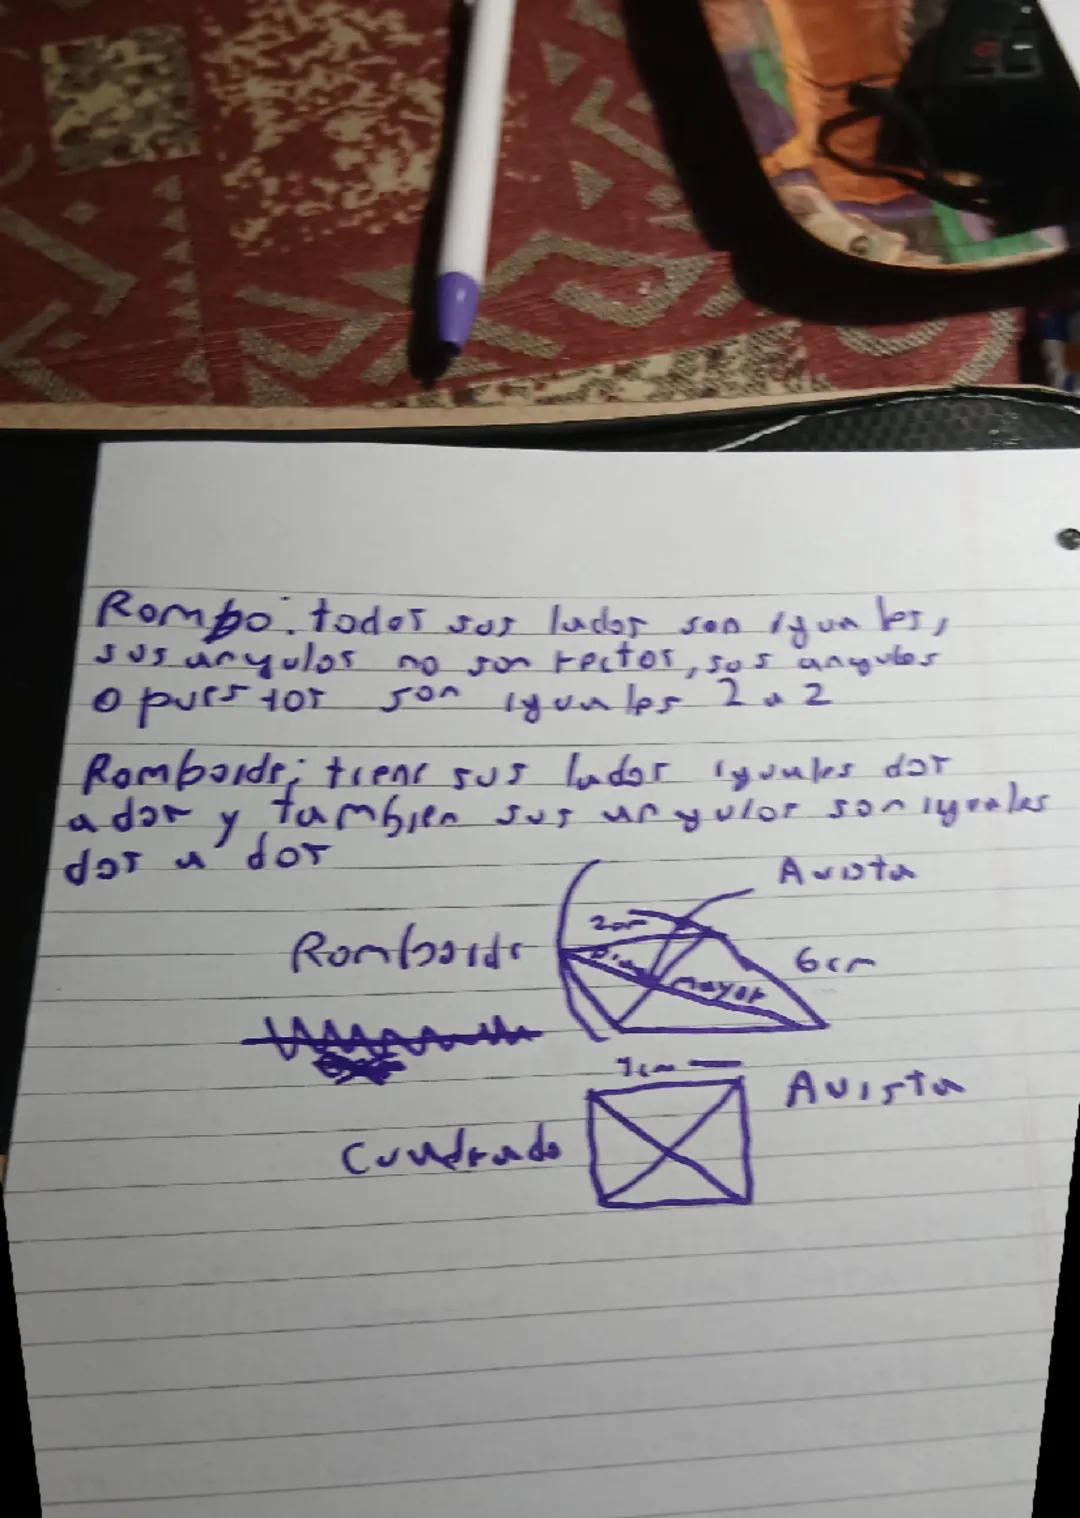 Rombo: todos sus lados son iguales,
sus angulos no son rectos, sus angulos
opuestos son iguales 2 a 2
Romboide; tiene sus lados iguales dos
a dos y tambien sus angulos son iguales
dos a dos
Avista
2cm
Romboide
6cm
mayor
7cm
Avista
Cuadrado